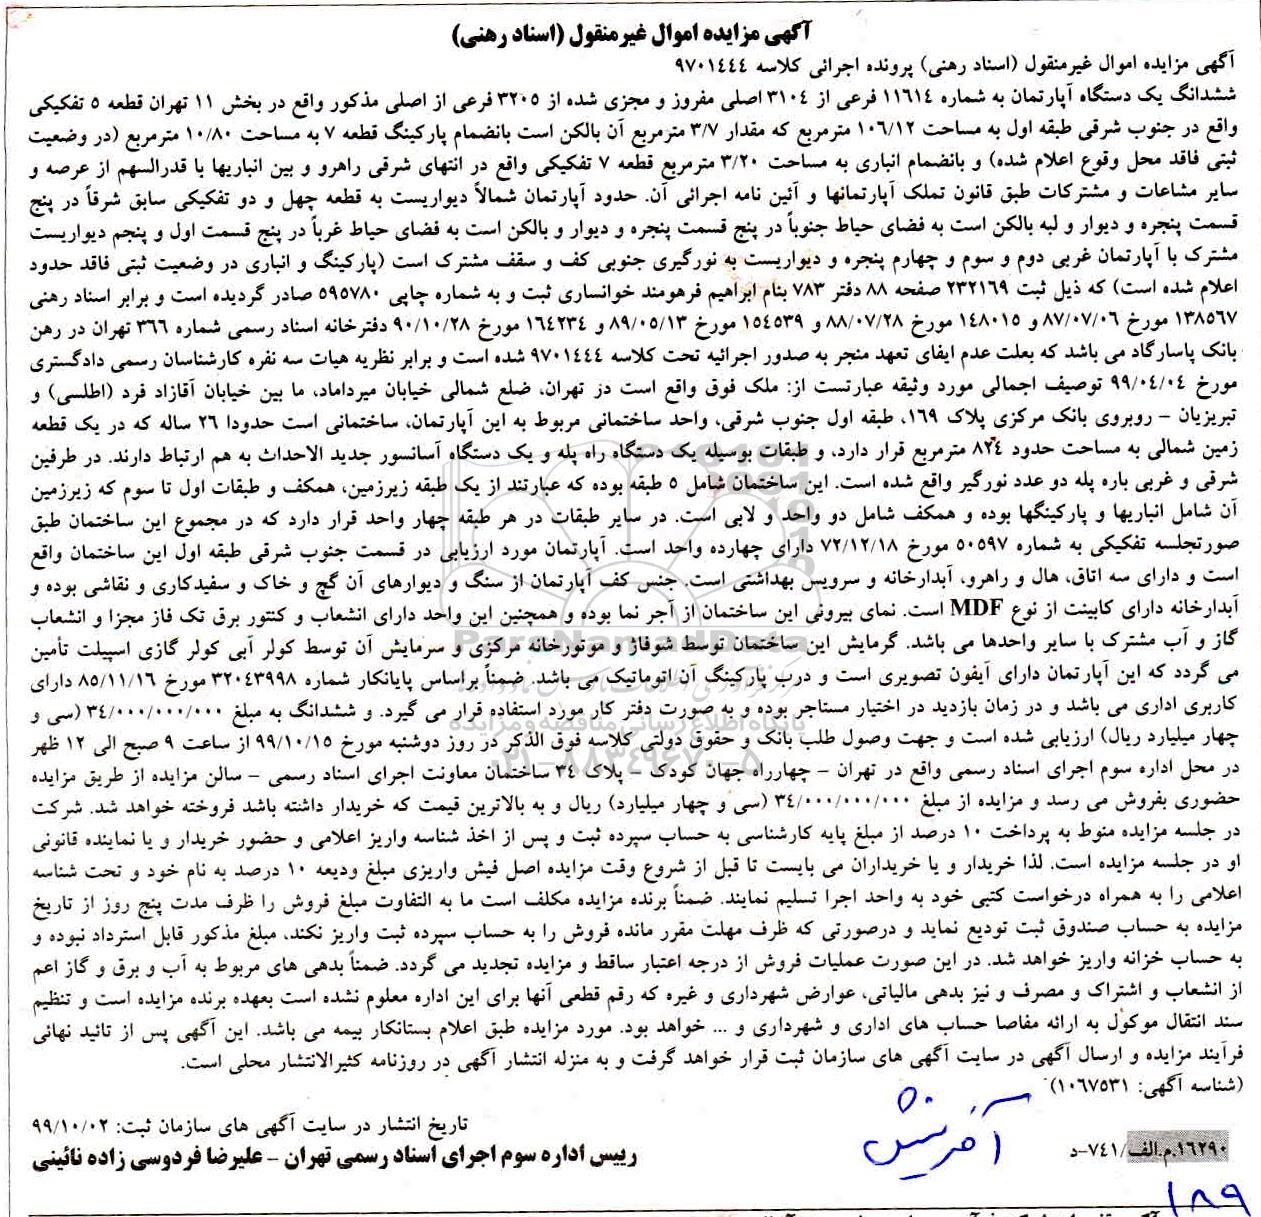 آگهی مزایده اموال غیرمنقول (اسناد رهنی)
آگهی مزایده اموال غیرمنقول (اسناد رهنی) پرونده اجرائی کلاسه ۹۷۰۱۴۴۴
ششدانگ یک دستگاه آپارتمان به شماره ۱۱۶۱۴ فرعی از ۳۱۰۴ اصلی مفروز و مجزی شده از ۳۲۰۵ فرعی از اصلی مذکور واقع در بخش ۱۱ تهران قطعه ۵ تفکیکی
واقع در جنوب شرقی طبقه اول به مساحت ۱۰۶/۱۲ مترمربع که مقدار ۳/۷ مترمربع آن بالکن است بانضمام پارکینگ قطعه ۷ به مساحت ۱۰/۸۰ مترمربع (در وضعیت
ثبتی فاقد محل وقوع اعلام شده) و بانضمام انباری به مساحت ۳/۲۰ مترمربع قطعه ۷ تفکیکی واقع در انتهای شرقی راهرو و بین انباریها با قدرالسهم از عرصه و
سایر مشاعات و مشترکات طبق قانون تملک آپارتمانها و آئین نامه اجرائی آن. حدود آپارتمان شمالاً دیواریست به قطعه چهل و دو تفکیکی سابق شرقاً در پنج
قسمت پنجره و دیوار و لبه بالکن است به فضای حیاط جنوباً در پنج قسمت پنجره و دیوار و بالکن است به فضای حیاط غرباً در پنج قسمت اول و پنجم دیواریست
مشترک با آپارتمان غربی دوم و سوم و چهارم پنجره و دیواریست به نورگیری جنوبی کف و سقف مشترک است (پارکینگ و انباری در وضعیت ثبتی فاقد حدود
اعلام شده است) که ذیل ثبت ۲۳۲۱۶۹ صفحه ۸۸ دفتر ۷۸۳ بنام ابراهیم فرهومند خوانساری ثبت و به شماره چاپی ۵۹۵۷۸۰ صادر گردیده است و برابر اسناد رهنی
۱۳۸۵۶۷ مورخ ۸۷/۰۷/۰۶ و ۱۴۸۰۱۵ مورخ ۸۸/۰۷/۲۸ و ۱۵۴۵۳۹ مورخ ۸۹/۰۵/۱۳ و ۱۶۴۲۳۴ مورخ ۹۰/۱۰/۲۸ دفترخانه اسناد رسمی شماره ۳۶۶ تهران در رهن
بانک پاسارگاد می باشد که بعلت عدم ایفای تعهد منجر به صدور اجرائیه تحت کلاسه ۹۷۰۱۴۴۴ شده است و برابر نظریه هیات سه نفره کارشناسان رسمی دادگستری
مورخ ۹۹/۰۴/۰۴ توصیف اجمالی مورد وثیقه عبارتست از: ملک فوق واقع است در تهران، ضلع شمالی خیابان میرداماد، ما بین خیابان آقازاد فرد (اطلسی) و
تبریزیان – روبروی بانک مرکزی پلاک ۱۶۹، طبقه اول جنوب شرقی، واحد ساختمانی مربوط به این آپارتمان، ساختمانی است حدودا ۲۶ ساله که در یک قطعه
زمین شمالی به مساحت حدود ۸۲۴ مترمربع قرار دارد، و طبقات بوسیله یک دستگاه راه پله و یک دستگاه آسانسور جدید الاحداث به هم ارتباط دارند. در طرفین
شرقی و غربی باره پله دو عدد نورگیر واقع شده است. این ساختمان شامل ۵ طبقه بوده که عبارتند از یک طبقه زیرزمین، همکف و طبقات اول تا سوم که زیرزمین
آن شامل انباریها و پارکینگها بوده و همکف شامل دو واحد و لابی است. در سایر طبقات در هر طبقه چهار واحد قرار دارد که در مجموع این ساختمان طبق
صورتجلسه تفکیکی به شماره ۵۰۵۹۷ مورخ ۷۲/۱۲/۱۸ دارای چهارده واحد است. آپارتمان مورد ارزیابی در قسمت جنوب شرقی طبقه اول این ساختمان واقع
است و دارای سه اتاق، هال و راهرو، آبدارخانه و سرویس بهداشتی است. جنس کف آپارتمان از سنگ و دیوارهای آن گچ و خاک و سفیدکاری و نقاشی بوده و
آبدارخانه دارای کابینت از نوع MDF است. نمای بیرونی این ساختمان از آجر نما بوده و همچنین این واحد دارای انشعاب و کنتور برق تک فاز مجزا و انشعاب
گاز و آب مشترک با سایر واحدها می باشد. گرمایش این ساختمان توسط شوفاژ و موتورخانه مرکزی و سرمایش آن توسط کولر آبی کولر گازی اسپیلت تأمین
می گردد که این آپارتمان دارای آیفون تصویری است و درب پارکینگ آن اتوماتیک می باشد. ضمناً براساس پایانکار شماره ۳۲۰۴۳۹۹۸ مورخ ۸۵/۱۱/۱۶ دارای
کاربری اداری می باشد و در زمان بازدید در اختیار مستاجر بوده و به صورت دفتر کار مورد استفاده قرار می گیرد. و ششدانگ به مبلغ ۳۴/۰۰۰/۰۰۰/۰۰۰ (سی و
چهار میلیارد ریال) ارزیابی شده است و جهت وصول طلب بانک و حقوق دولتی کلاسه فوق الذکر در روز دوشنبه مورخ ۹۹/۱۰/۱۵ از ساعت ۹ صبح الی ۱۲ ظهر
در محل اداره سوم اجرای اسناد رسمی واقع در تهران – چهارراه جهان کودک – پلاک ۳۴ ساختمان معاونت اجرای اسناد رسمی – سالن مزایده از طریق مزایده
حضوری بفروش می رسد و مزایده از مبلغ ۳۴/۰۰۰/۰۰۰/۰۰۰ (سی و چهار میلیارد) ریال و به بالاترین قیمت که خریدار داشته باشد فروخته خواهد شد. شرکت
در جلسه مزایده منوط به پرداخت ۱۰ درصد از مبلغ پایه کارشناسی به حساب سپرده ثبت و پس از اخذ شناسه واریز اعلامی و حضور خریدار و یا نماینده قانونی
او در جلسه مزایده است. لذا خریدار و یا خریداران می بایست تا قبل از شروع وقت مزایده اصل فیش واریزی مبلغ ودیعه ۱۰ درصد به نام خود و تحت شناسه
اعلامی را به همراه درخواست کتبی خود به واحد اجرا تسلیم نمایند. ضمناً برنده مزایده مکلف است ما به التفاوت مبلغ فروش را ظرف مدت پنج روز از تاریخ
مزایده به حساب صندوق ثبت تودیع نماید و درصورتی که ظرف مهلت مقرر مانده فروش را به حساب سپرده ثبت واریز نکند، مبلغ مذکور قابل استرداد نبوده و
به حساب خزانه واریز خواهد شد. در این صورت عملیات فروش از درجه اعتبار ساقط و مزایده تجدید می گردد. ضمناً بدهی های مربوط به آب و برق و گاز اعم
از انشعاب و اشتراک و مصرف و نیز بدهی مالیاتی، عوارض شهرداری و غیره که رقم قطعی آنها برای این اداره معلوم نشده است بعهده برنده مزایده است و تنظیم
سند انتقال موکول به ارائه مفاصا حساب های اداری و شهرداری و ... خواهد بود. مورد مزایده طبق اعلام بستانکار بیمه می باشد. این آگهی پس از تائید نهائی
فرآیند مزایده و ارسال آگهی در سایت آگهی های سازمان ثبت قرار خواهد گرفت و به منزله انتشار آگهی در روزنامه کثیرالانتشار محلی است.
(شناسه آگهی: ۱۰۶۷۵۳۱)
تاریخ انتشار در سایت آگهی های سازمان ثبت: ۹۹/۱۰/۰۲
۱۶۲۹۰.م.الف/۷۴۱-د
رییس اداره سوم اجرای اسناد رسمی تهران - علیرضا فردوسی زاده نائینی
آفرینش
۱۸۹
ParsNamadData
پایگاه اطلاع رسانی مناقصه و مزایده
۰۲۱-۸۸۳۴۹۶۷۰-۵